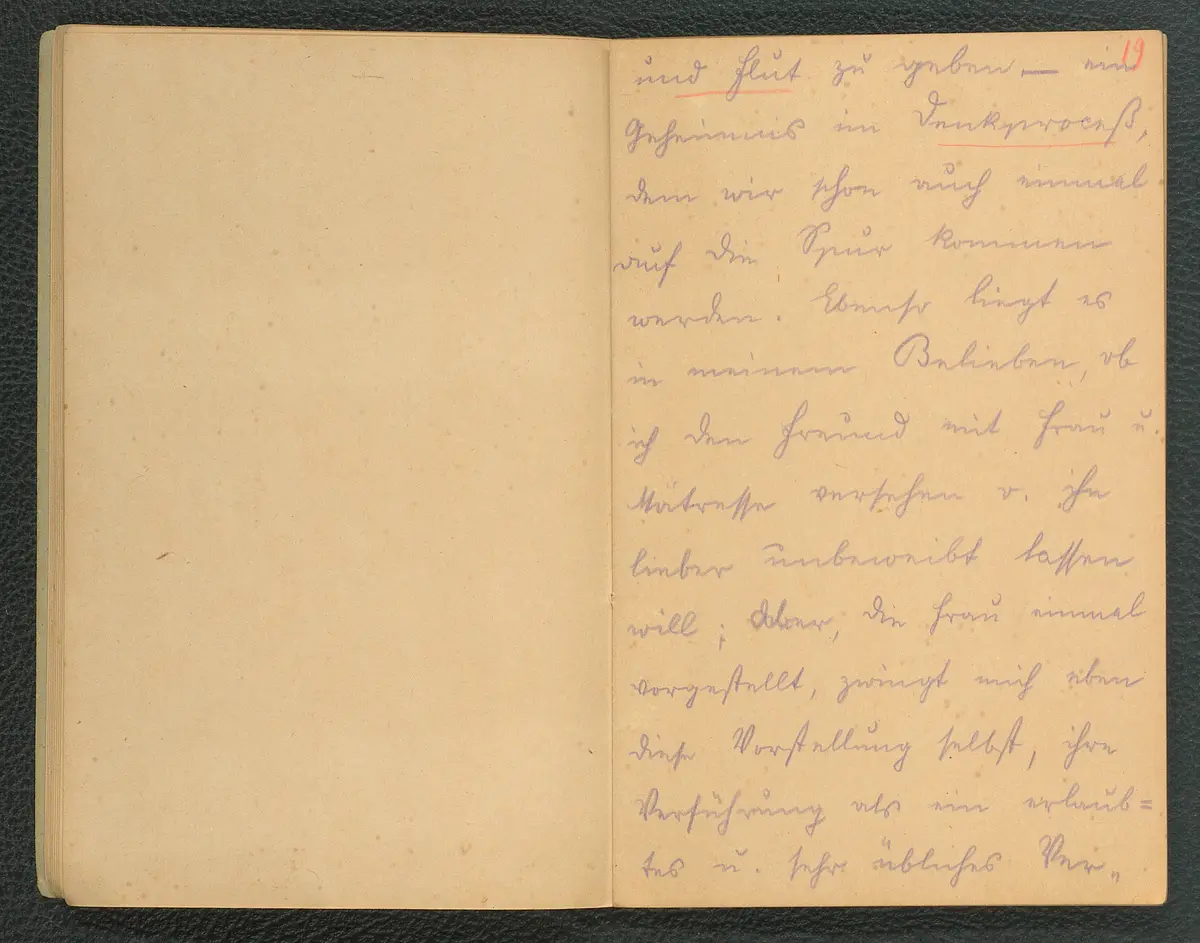 19
und Flut zu geben — ein
Geheimnis im Denkproceß,
dem wir schon auch einmal
auf die Spur kommen
werden. Ebenso liegt es
in meinem Belieben, ob
ich den Freund mit Frau u.
Mätresse versehen o. ihn
lieber unbeweibt lassen
will; aber, die Frau einmal
vorgestellt, zwingt mich eben
diese Vorstellung selbst, ihre
Verführung als ein erlaub=
tes u. sehr übliches Ver„